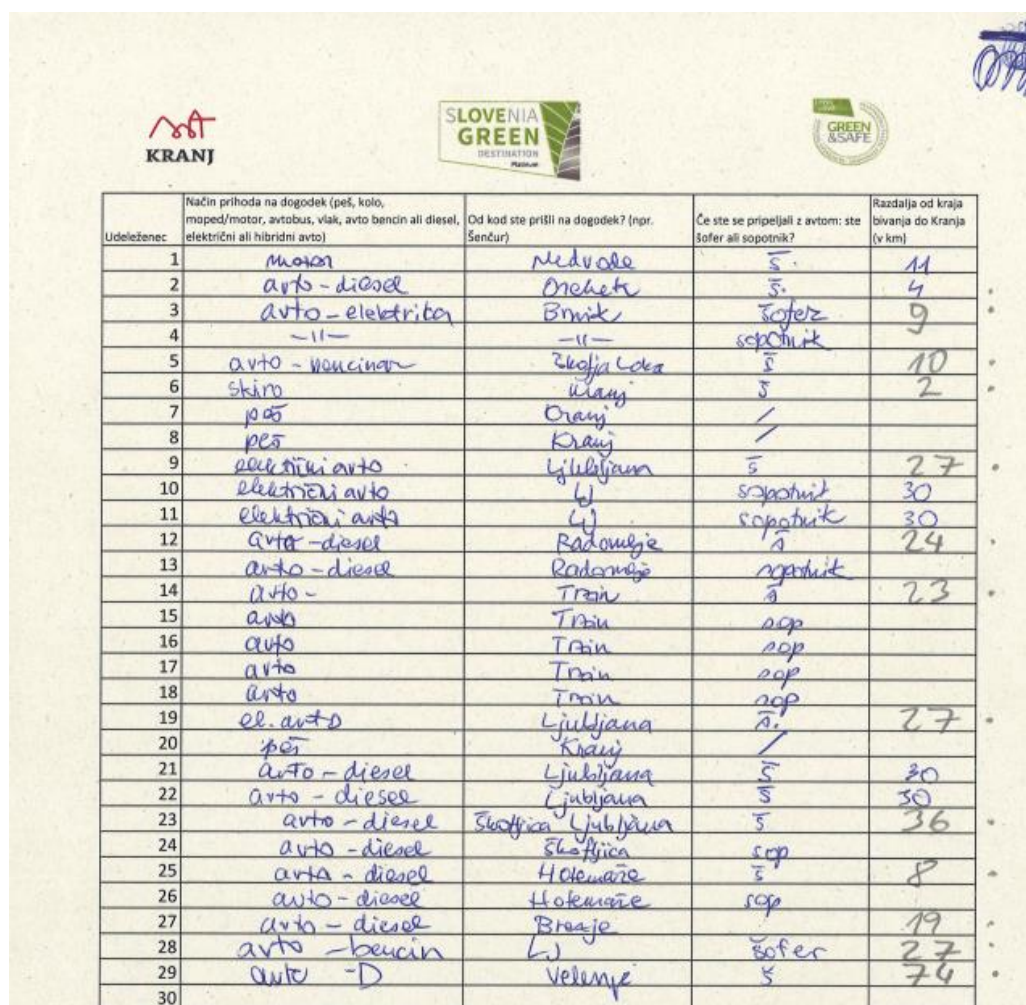 KRANJ
SLOVENIA
GREEN
DESTINATION
Platinum
GREEN
&SAFE
Udeleženec Način prihoda na dogodek (peš, kolo, moped/motor, avtobus, vlak, avto bencin ali diesel, električni ali hibridni avto) Od kod ste prišli na dogodek? (npr. Šenčur) Če ste se pripeljali z avtom: ste šofer ali sopotnik? Razdalja od kraja bivanja do Kranja (v km)
1 motor Medvode Š. 11
2 avto - diesel Orehek Š. 4
3 avto - elektrika Brnik šofer 9
4 -||- -||- sopotnik
5 avto - bencinar Škofja Loka Š 10
6 skiro Kranj Š 2
7 peš Kranj /
8 peš Kranj /
9 električni avto Ljubljana Š 27
10 električni avto LJ sopotnik 30
11 električni avto LJ sopotnik 30
12 avto - diesel Radomlje Š 24
13 avto - diesel Radomlje sopotnik
14 avto - Trzin Š 23
15 avto Trzin sop
16 avto Trzin sop
17 avto Trzin sop
18 avto Trzin sop
19 el. avto Ljubljana Š. 27
20 peš Kranj /
21 avto - diesel Ljubljana Š 30
22 avto - diesel Ljubljana Š 30
23 avto - diesel Škofljica Ljubljana Š 36
24 avto - diesel Škofljica sop
25 avto - diesel Hotemaže Š 8
26 avto - diesel Hotemaže sop
27 avto - diesel Brezje 19
28 avto - bencin LJ šofer 27
29 avto - D Velenje Š 74
30